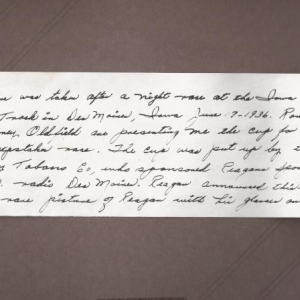 was taken after a night race at the Iowa
Track in Des Moines, Iowa June 7-1936. Ron
ney Oldfield are presenting me the cup for
epstakes race. The cup was put up by
Tobacco Co, who sponsored Reagan
radio Des Moines. Reagan announced this
rare picture of Reagan with his glasses on